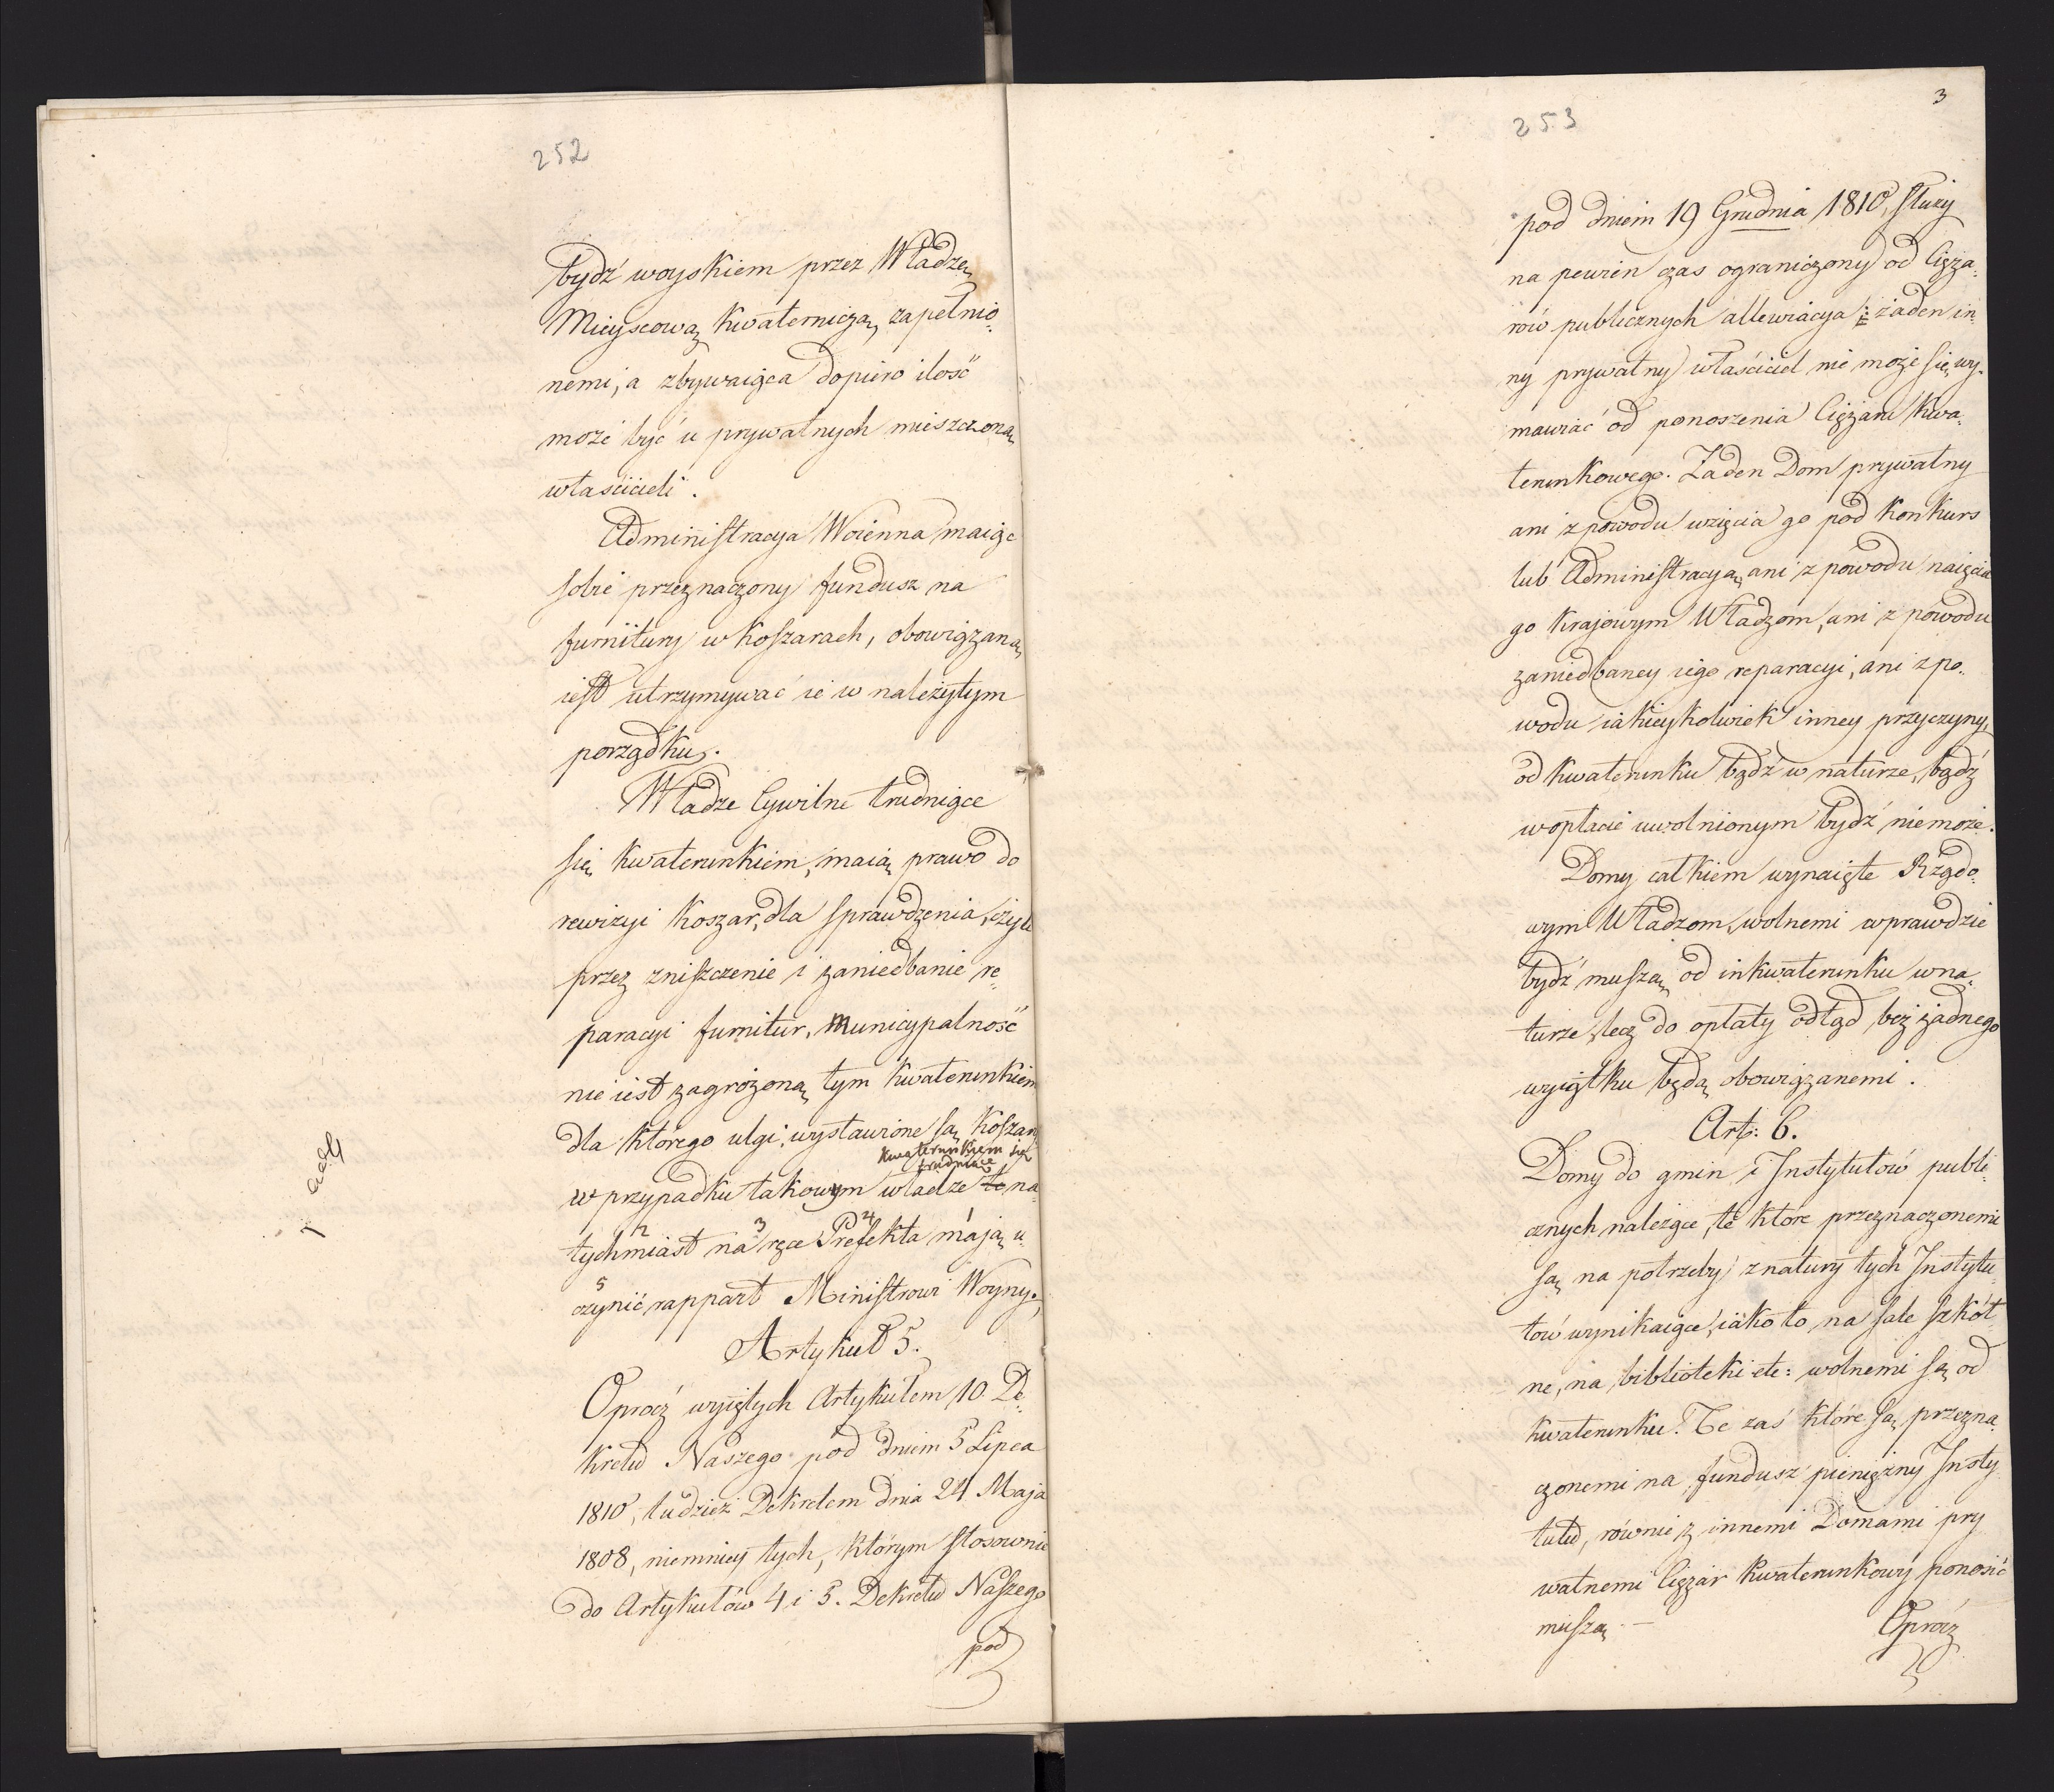 252
bydź woyskiem przez Władzę
Mieyscową kwaterniczą zapełnio-
nemi, a zbywaiąca dopiero ilość
może być u prywatnych mieszczoną
właścicieli.
Administracya Woienna maiąc
sobie przeznaczony fundusz na
furnitury w koszarach, obowiązaną
iest utrzymywać ie w należytym
porządku.
Władze Cywilne trudniące
się kwaterunkiem, maią prawo do
rewizyi koszar, dla sprawdzenia, czyli
przez zniszczenie i zaniedbanie re-
paracyi furnitur, Municypalność
nie iest zagrożoną tym kwaterunkiem
dla którego ulgi wystawione są koszary
kwaterunkiem się
trudniące
w przypadku takowym władze te na-
2 3 4 1
tychmiast na ręce Prefekta mają u-
5
czynić rappart Ministrowi Woyny.
Artykuł 5.
Oprócz wyiętych Artykułem 10. De-
kretu Naszego pod dniem 5 Lipca
1810, tudzież Dekretem dnia 24 Maja
1808, niemniey tych, którym stosownie
do Artykułów 4 i 5. Dekretu Naszego
pod
3
253
pod dniem 19 Grudnia 1810, służy
na pewien czas ograniczony od Cięża-
rów publicznych allewiacya; żaden in-
ny prywatny właściciel nie może się wy-
mawiać od ponoszenia Ciężaru kwa-
terunkowego. Żaden Dom prywatny
ani z powodu wzięcia go pod konkurs
lub Administracyą, ani z powodu naięcia
go krajowym Władzom, ani z powodu
zaniedbaney iego reparacyi, ani z po-
wodu iakieykolwiek inney przyczyny,
od kwaterunku bądź w naturze, bądź
w opłacie uwolnionym bydź niemoże.
Domy całkiem wynaięte Rządo-
wym Władzom, wolnemi wprawdzie
bydź muszą od inkwaterunku w na-
turze, lecz do opłaty odtąd bez żadnego
wyiątku będą obowiązanemi.
Art: 6.
Domy do gmin i Instytutów publi-
cznych należące, te które przeznaczonemi
są na potrzeby z natury tych Instytu-
tów wynikaiące, iako to na sale szkół-
ne, na biblioteki etc: wolnemi są od
kwaterunku. Te zaś które są przezna-
czonemi na fundusz pieniężny Insty-
tutu, równie z innemi Domami pry-
watnemi Ciężar kwaterunkowy ponosić
muszą. —
Oprócz